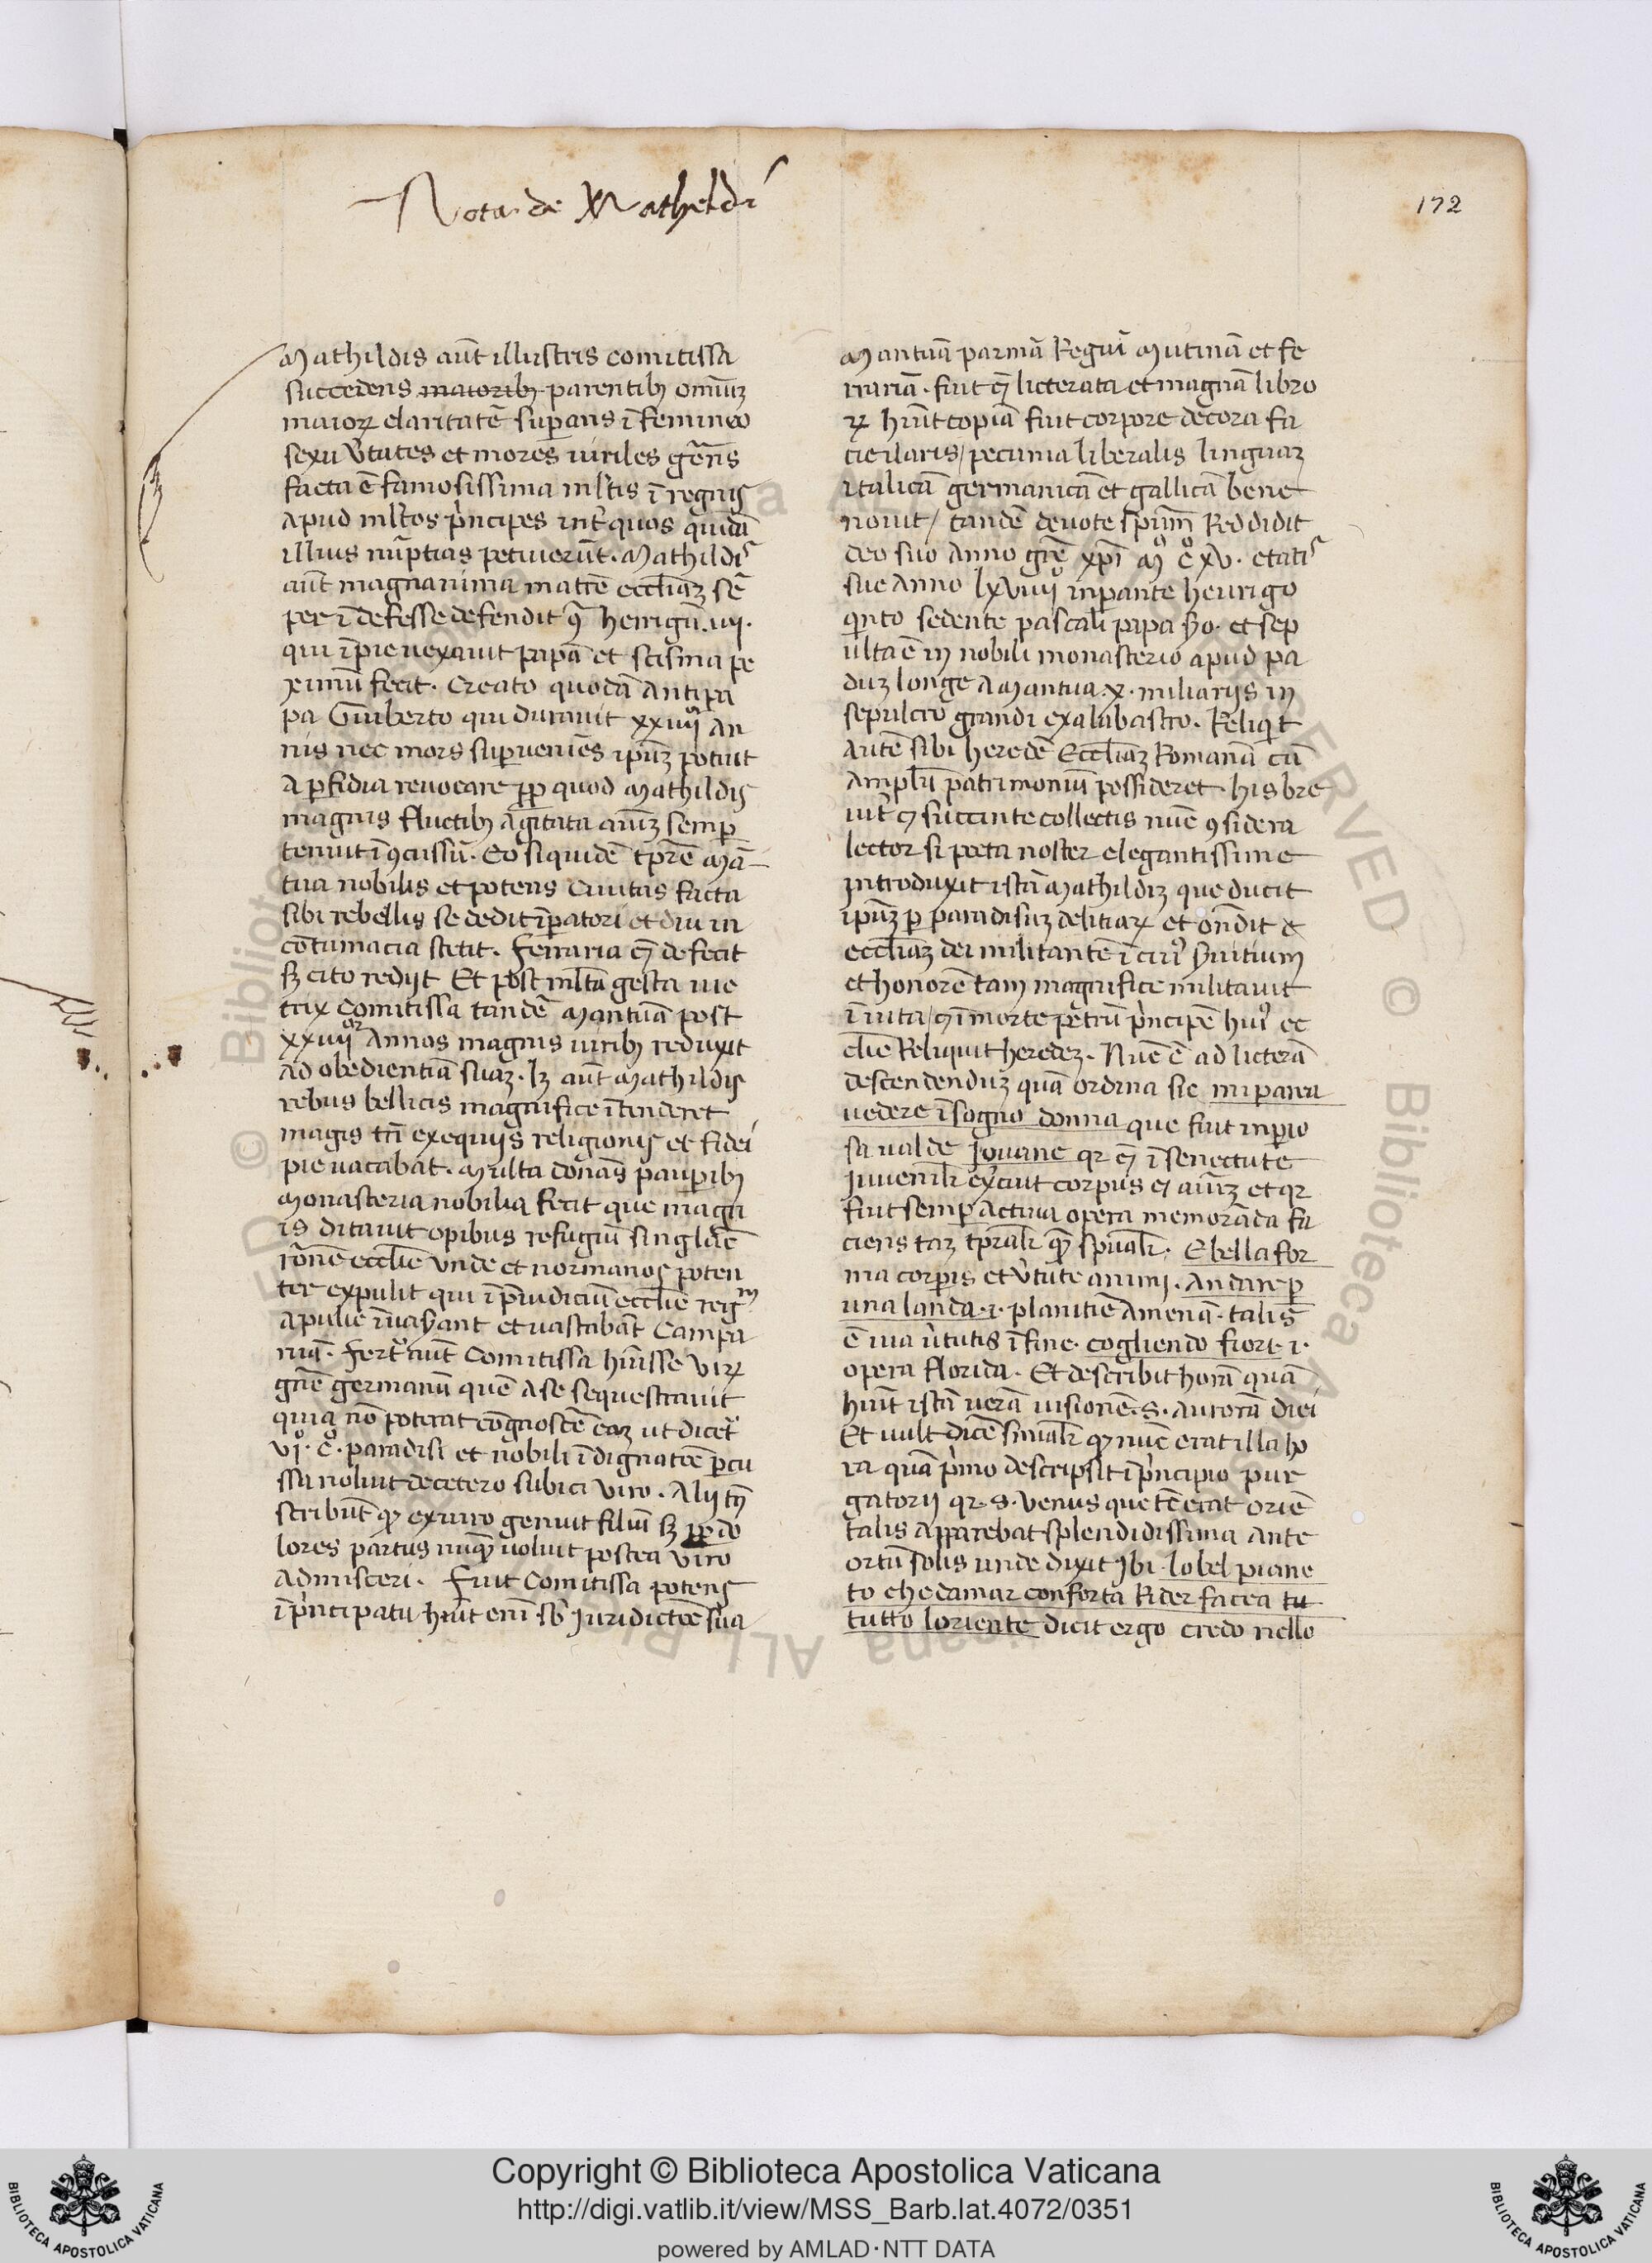 Nota de Matheldi
172
Mathildis aūt illustris comitissa
succedens maioribȝ parentibȝ omīuȝ
maioꝝ claritatē suꝑans ī femineo
sexu v̄tutes et mores uiriles gēns
facta ē famosissima mltis ī regnis
apud mltos pͥncipes int̓ quos quidā
illius nūptias petiuerūt. Mathildis
aūt magnanima matrē eccliaȝ sē
per īdefesse defendit ꝯ̄ henrigū .iiij.
qui īpie uexauit papā et scisma pe
ximū fecit. Creato quodā antipa
pa Guiberto qui durauit xxiiij an
nis nec mors suꝑueniēs ipūȝ potuit
a ꝑfidia reuocare ꝓp̄ quod Mathildis
magnis fluctibȝ agitata aīuȝ semꝑ
tenuit īꝯcussū. Eo siquidē tp̄re Mā
tua nobilis et potens ciuitas facta
sibi rebellis se dedit īꝑatori et diu in
contumacia stetit. Ferraria eciā defecit
sȝ cito redijt Et post mlta gesta uic
trix Comitissa tandē Mantuā post
xxiiij annos magnis uiribȝ reduxit
ad obedientiā suaȝ. lȝ aūt Mathildis
rebus bellicis magnifice ītenderet
magis tn̄ exequijs religionis et fidei
pie uacabat. Multa donās pauꝑibȝ
Monasteria nobilia fecit que magn
is ditauit opibus refugiū singlāē
rōnē ecclie vnde et normanos poten
ter expulit qui ī p̄iudiciū ecclie regm
apulie īuas̄ant et uastabāt Campa
niā. Fert̓ aūt Comitissa hūisse viꝝ
gn̄e germanū quē a se sequestrauit
quia nō poterat cognoscē eaȝ ut dicet̓
vi. c̊. paradisi et nobili īdignatōe ꝑcu
ssa noluit decetero subici viro. Alij tn̄
scribūt ꝙ ex uiro genuit filiū sȝ ꝓp̄ do
lores partus nūqȝ uoluit postea viro
admisceri. Fuit Comitissa potens
ī pͥncipatu hūit enī sb̄ Juridictōe sua
Mantuā parmā Regiū Mutinā et fe
rrariā. fuit eciā licterata et magnā libro
ꝝ hūit copiā fuit corpore decora fa
cie ilaris/ pecunia liberalis linguaȝ
italicā germanicā et gallicā bene
nouit/ tandē deuote spūm Reddidit
deo suo Anno grē xp̄i M̊ c̊ xv. etatis
sue Anno lxviiij inꝑante henrigo
qͥnto sedente pascali papa s̄o. et sep
ulta ē in nobili monasterio apud pa
duȝ longe a Mantua .x. miliarijs in
sepulcro grandi ex alabastro. Reliqͥt
autē sibi heredē Eccliaȝ Romanā cū
amplū patrimoniū possideret. his bre
uit̓ et succinte collectis nūc ꝯsidera
lector si poeta noster elegantissime
introduxit istā Mathildiȝ que ducit
ipūȝ ꝑ paradisuȝ delitiaꝝ et on̄dit e
eccliaȝ dei militantē ī cuiꝰ s̄uitium
et honorē tam magnifice militauit
ī uita/ et ī morte petrū pͥncipē huiꝰ ec
clie Reliquit heredeȝ. Nūc ē ad licterā
descendenduȝ quā ordina sic mi parea
uedere ī sogno donna que fuit inꝑio
sa ualde Jouane qꝛ eciā ī senectute
Juueniłr ex̄cuit corpus et aīuȝ et qꝛ
fuit semꝑ actiua opera memorāda fa
ciens taȝ tp̄rałr qȝ spūałr. E bella for
ma corꝑis et v̄tute animi. Andare ꝑ
una landa .i. planitiē amenā. talis
ē uia v̄tutis ī fine. cogliendo fiori .i.
opera florida. Et describit horā quā
hūit istā uerā uisionē .s. aurorā diei
Et uult dicē simałr ꝙ nūc erat illa ho
ra quā pͥmo descripsit ī pͥncipio pur
gatorij qꝛ .s. venus que tē erat oriē
talis apparebat splendidissima ante
ortū solis unde dixit ibi. lo bel piane
to che damar conforta Rider facea tu
tutto loriente dicit ergo credo nello
Copyright © Biblioteca Apostolica Vaticana
http://digi.vatlib.it/view/MSS_Barb.lat.4072/0351
powered by AMLAD·NTT DATA